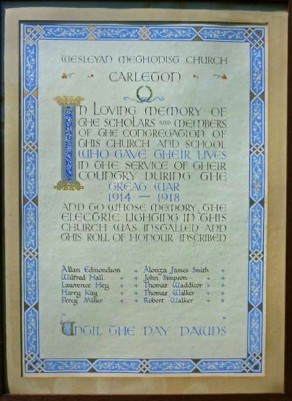 WESLEYAN METHODIST CHURCH
CARLETON
IN LOVING MEMORY OF
THE SCHOLARS AND MEMBERS
OF THE CONGREGATION OF
THIS CHURCH AND SCHOOL
WHO GAVE THEIR LIVES
IN THE SERVICE OF THEIR
COUNTRY DURING THE
GREAT WAR
1914 — 1918
AND TO WHOSE MEMORY, THE
ELECTRIC LIGHTING IN THIS
CHURCH WAS INSTALLED AND
THIS ROLL OF HONOUR INSCRIBED
Allan Edmondson
Wilfred Hall
Lawrence Hey
Harry Kay
Percy Miller
Alonza James Smith
John Simpson
Thomas Waddicor
Thomas Walker
Robert Walker
UNTIL THE DAY DAWNS